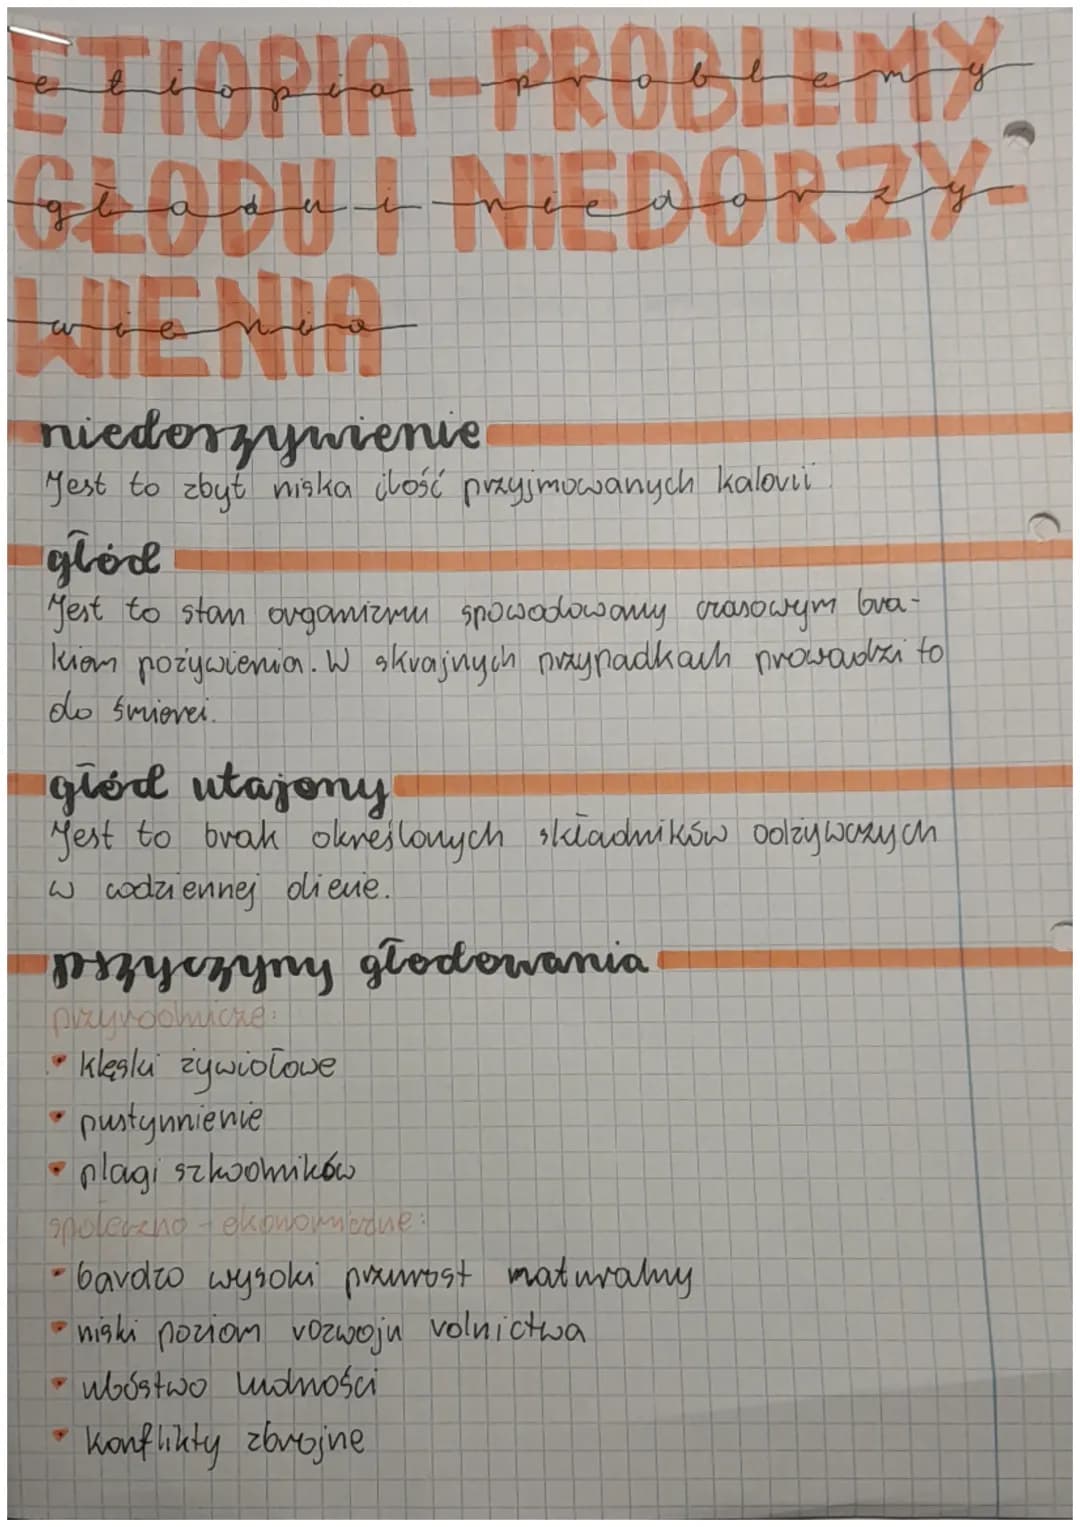 ETIOPIA-PROBLEMY
etiopia-problemy
GŁODU I NIEDORZY-
głodu i niedorzy-
WIENIA
wienia
niedorzywienie
Jest to zbyt niska ilość przyjmowanych kalorii.
głód
Jest to stan organizmu spowodowany czasowym bra-
kiem pożywienia. W skrajnych przypadkach prowadzi to
do śmierci.
głód utajony
Jest to brak określonych składników odżywczych
w codziennej diecie.
przyczyny głodowania
przyrodnicze:
• klęski żywiołowe
• pustynnienie
• plagi szkodników
społeczno-ekonomiczne:
• bardzo wysoki przyrost naturalny
• niski poziom rozwoju rolnictwa
• ubóstwo ludności
• konflikty zbrojne